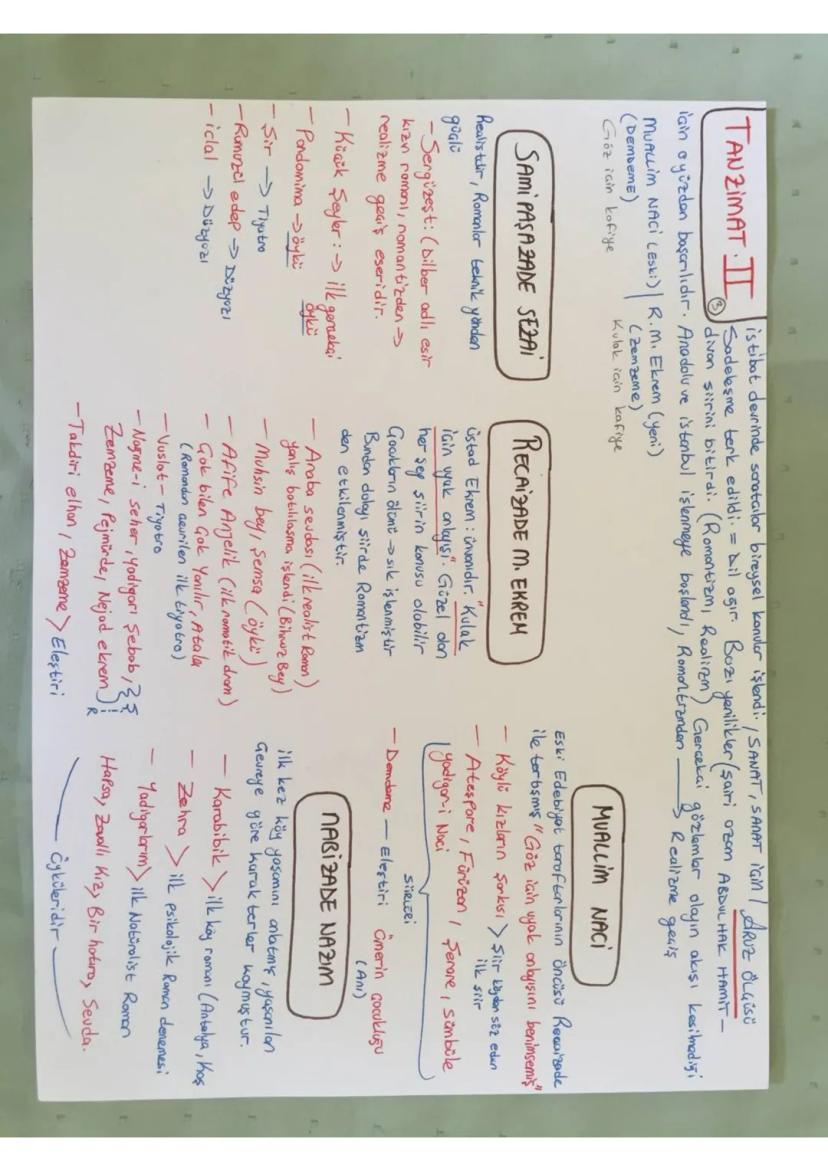 TANZİMAT. II
③
istibat devrinde sanatcılar bireysel konular işlendi. / SANAT, SANAT için / ARUZ ÖLÇÜSÜ
Sadeleşme terk edildi. = Dil ağır. Bazı yenilikler (şairi azam ABDULHAK HAMİT -
divan şiirini bitirdi. (Romantizm, Realizm) Gercekci gözlemler olayın akışı kesilmediği
için o yüzden başarılıdır. Anadolu ve istanbul işlenmeye başlandı, Romantizmden → Realizme geçiş
MUALLİM NACİ (eski) | R. M. Ekrem (yeni)
(DEMDEME) (Zemzeme)
Göz için kafiye Kulak için kafiye
SAMİ PAŞAZADE SEZAİ
Realisttir, Romanlar teknik yönden
güçlü
- Sergüzeşt: (Dilber adlı esir
kızın romanı, romantizden →
realizme geçiş eseridir.
- Küçük Şeyler: → ilk gerçekçi
öykü
- Pandomima → öykü
- Şir → Tiyatro
- Rumuzel edep → Düzyazı
- iclal → Düzyazı
RECAİZADE M. EKREM
üstad Ekrem: ünvanıdır. "Kulak
için uyak anlayışı". Güzel olan
her şey şiirin konusu olabilir
Çocukların ölümü → sık işlenmiştir
Bundan dolayı şiirde Romantizm
den etkilenmiştir.
- Araba sevdası (ilk realist Roman)
yanlış batılılaşma işlendi (Bihruz Bey)
- Muhsin bey, Şemsa (öykü)
- Afife Anjelik (ilk romatik dram)
- Çok bilen Çok Yanılır, Atala
(Romandan çevrilen ilk tiyatro)
- Vuslat - Tiyatro
- Nağme-i seher, Yadigarı Şebab, } Ş
Zemzeme, Pejmürde, Nejad ekrem } i
R
- Takdiri elhan, Zemzeme > Eleştiri
MUALLİM NACİ
Eski Edebiyat taraftarlarının Öncüsü Recaizade
ile tartışmış "Göz için uyak anlayışını benimsemiş"
- Köylü kızların Şarkısı > Şiir köyden söz eden
ilk şiir
- Ateşpare, Fürüzan, Şerare, Sümbüle
Yadigar-i Naci
şiirleri
- Demdeme — Eleştiri Ömerin çocukluğu
(Anı)
NABİZADE NAZIM
ilk kez köy yaşamını anlatmış, yaşanılan
Çevreye göre karakterler koymuştur.
- Karabibik > ilk köy romanı (Antalya, Kaş
- Zehra > ilk psikolojik Roman denemesi
- Yadigarlarım > ilk Natüralist Roman
Hapsa, Zavallı Kız, Bir hatıra, Sevda.
Öyküleridir